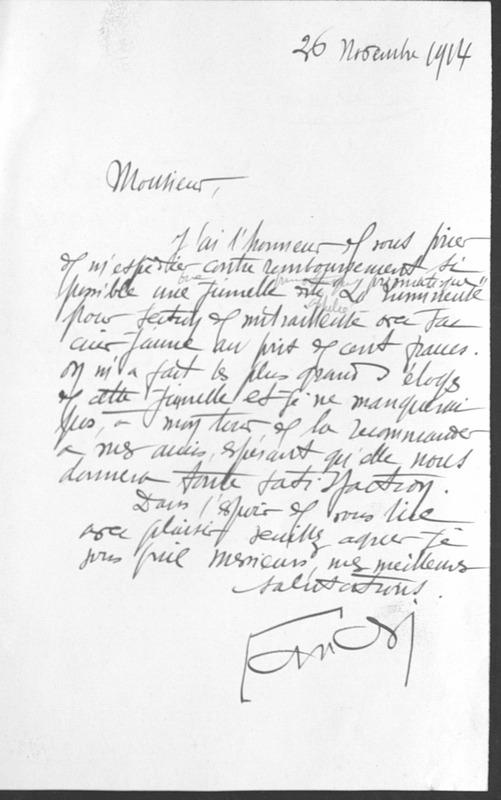 26 Novembre 1914
Monsieur,
J'ai l'honneur de vous prier
de m'expédier contre remboursement si
possible une Jumelle dite "La lumineuse"
pour section de mitrailleuse avec
cuir Jaune au prix de cent francs.
On m'a fait les plus grands éloges
de cette Jumelle et je ne manquerai
pas, à mon tour de la recommander
à mes amis, espérant qu'elle nous
donnera toute satisfaction.
Dans l'espoir de vous lire
avec plaisir veuillez agréer je
vous prie messieurs mes meilleures
salutations.